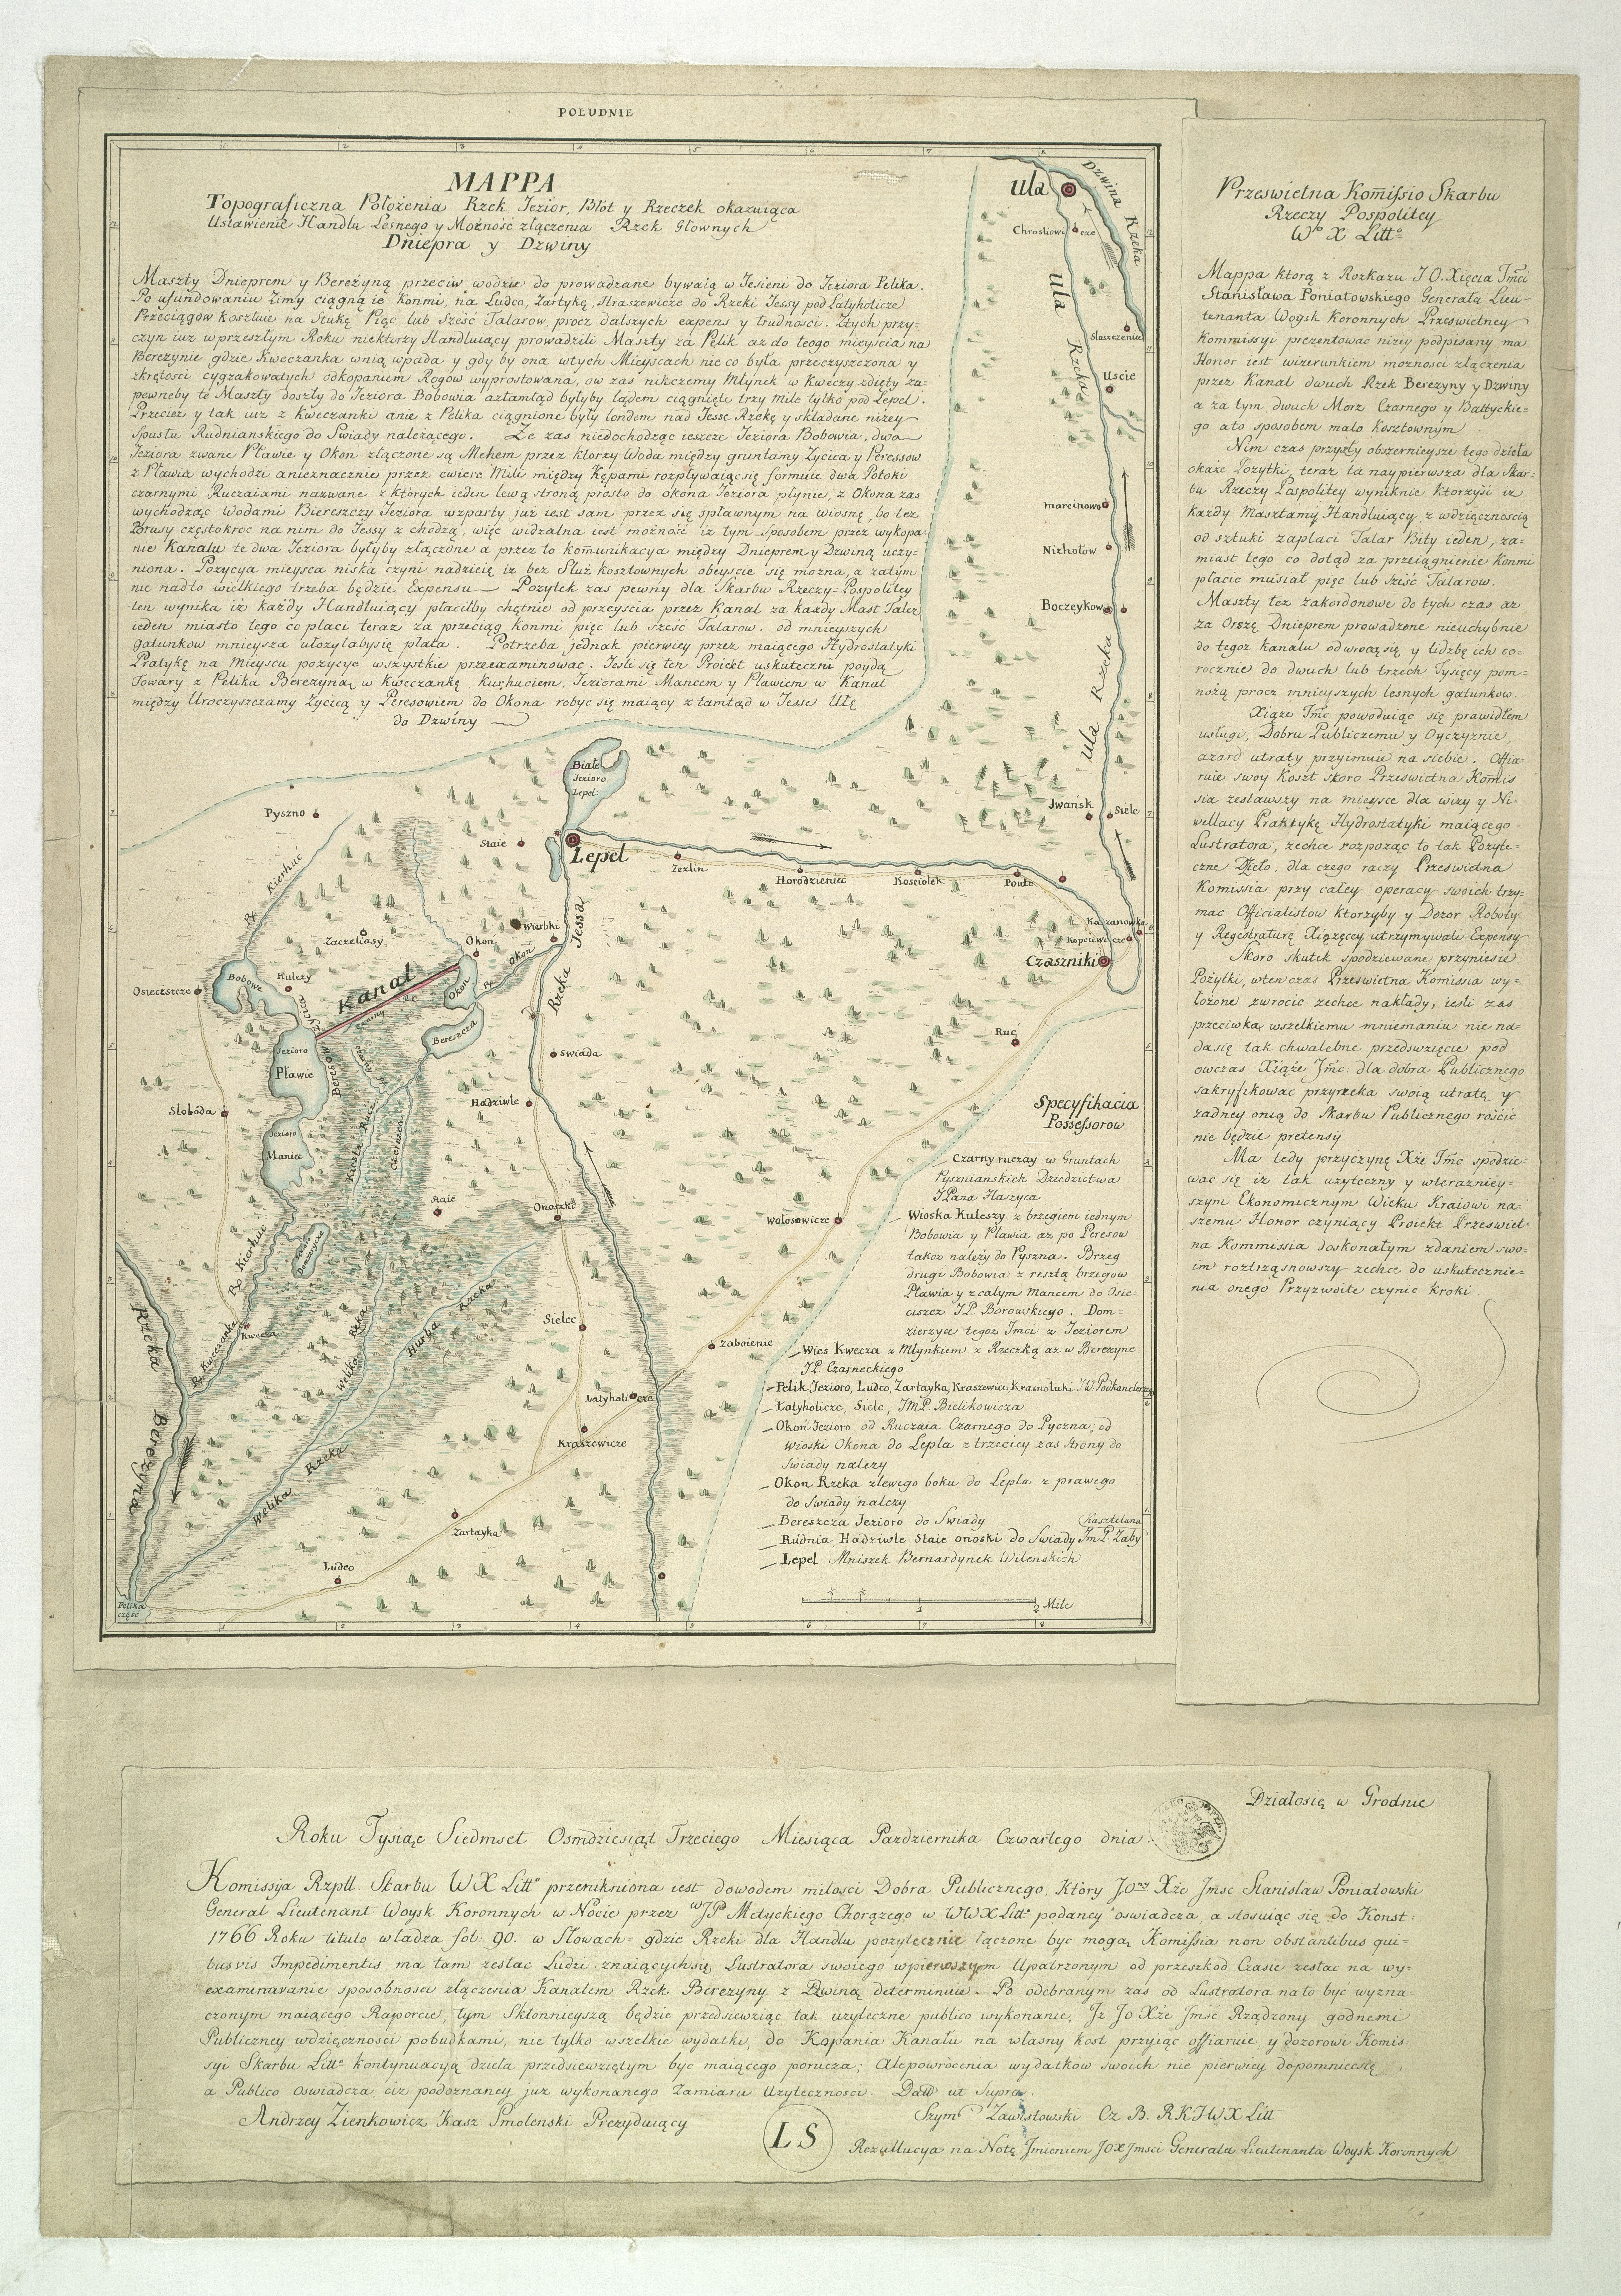 POŁUDNIE
MAPPA
Topograficzna Położenia Rzek Jezior, Błot y Rzeczek okazuiąca
Ustawienie Handlu Lesnego y Możność złączenia Rzek Głownych
Dniepra y Dzwiny
Maszty Dnieprem y Bereżyną przeciw wodzie do prowadzane bywaią w Jesieni do Jeziora Pelika.
Po ufundowaniu Zimy ciągną ie Konmi, na Ludco, Zartykę, Straszewicze do Rzeki Jessy pod Łatyholicze
Przeciągow kosztuie na Sztukę Pięc lub Sześć Talarow, procz dalszych expens y trudnosci. Ztych przy-
czyn iuz w przeszłym Roku niektorzy Handluiący prowadzili Maszty za Pelik az do teogo mieyscia na
Berezynie gdzie Kweczanka wnią wpada y gdy by ona wtych Mieyscach nieco była przeczyszczona y
zkrętości cygzakowatych odkopaniem Rogow wyprostowana, ow zas nikczemy Młynek w Kweczy zdięty za-
pewneby te Maszty doszły do Jeziora Bobowia aztamtąd byłyby lądem ciągnięte trzy mile tylko pod Lepel.
Przecież y tak iuz z Kweczanki anie z Pelika ciągnione były londem nad Jesse Rzekę y składane niżey
Spustu Rudnianskiego do Swiady należącego. Ze zas niedochodząc ieszcze Jeziora Bobowia, dwa
Jeziora zwane Pławie y Okon złączone są Mchem przez ktorzy Woda między gruntamy Zycica y Peressow
z Pławia wychodzi anieznacznie przez cwierc Mili między Kępami rozpływaiąc się formuie dwa Potoki
czarnymi Ruczaiami nazwane z których ieden lewą stroną prosto do okona Jeziora płynie, z Okona zas
wychodząc Wodami Biereszczy Jeziora wzparty juz iest sam przez się spławnym na wiosnę, bo tez
Brusy częstokroc na nim do Jessy z chodzą, więc widzalna iest możność iz tym sposobem przez wykopa-
nie Kanalu te dwa Jeziora byłyby złączone a przez to kom̄unikacya między Dnieprem y Dzwiną uczy-
niona. Pozycya mieysca niska czyni nadzieię iz bez Sluż kosztownych obeyscie się można, a zatym
nie nadto wielkiego trzeba będzie Expensu. Pozytek zas pewny dla Skarbu Rzeczy-Pospolitey
ten wynika iż każdy Handluiący płaciłby chętnie od przeyscia przez Kanal za każdy Mast Taler
ieden miasto tego co płaci teraz za przeciąg konmi pięc lub sześc Talarow. od mnieyszych
gatunkow mnieysza ułozyłabysię płata. Potrzeba jednak pierwiey przez maiącego Hydrostatyki
Pratykę na Mieyscu pozycye wszystkie przeexaminowac. Jesli się ten Proiekt uskuteczni poydą
Towary z Pelika Berezyną w Kweczankę, Kuchuciem, Jeziorami Mancem y Pławiem w Kanał
między Uroczyszczamy Zycicą y Peresowiem do Okona robyc się maiący z tamtąd w Jesse Ułę
do Dzwiny
Ula
Dzwina Rzeka
Chrosłowicze
Ula Rzeka
Słaszczenia
Uscie
marcinowo
Nicholow
Boczeykow
Ula Rzeka
Jwańsk
Siele
Białe
Jezioro
Lepel:
Pyszno
Staie
Lepel
Zezlin
Horodzieniec
Kosciolek
Poute
R. Kierhuć
Wierbki
Zaczeliasy
Okon
R. Okon
Rzeka Jessa
Kaszanowka
Kopciewicze
Czaszniki
Osiecisczcze
Bobowe
Kulezy
Zycica
Kanał
Okon
Bereszcza
Jezioro
Pławie
Beresow
Ruc
Swiada
Sloboda
Hadziwle
Jezioro
Maniec
Czernica
Staie
Onoszki
Wołosowicze
R. Kierhuc
R. Kweczanka
Kwecza
Rzeka Berezyna
Welika Rzka
Hurba Rzeka
Sielec
Zaboienie
Łatyholicze
Kraszewicze
Welika Rzeka
Zartayka
Ludco
Pelika
częsc
Specyfikacia
Possessorow
Czarny ruczay w Gruntach
Pysznianskich Dziedzictwa
JPana Haszyca
Wioska Kuleszy z brzegiem iednym
Bobowia y Pławia az po Peresow
takoz należy do Pyszna. Brzeg
drugi Bobowia z resztą brzegow
Pławia y z całym Mancem do Osie-
ciszcz JP Borowskiego. Dom-
zierzyce tegoz Jmci z Jeziorem
Wies Kwecza z Młynkiem z Rzeczką az w Berezyne
JP. Czarneckiego
Pelik Jezioro, Ludco, Zartayka, Kraszewice, Krasnoluki JW. Podkanclerzego
Łatyholicze, Siele, JMP. Bielikowicza
Okoń Jezioro od Ruczaia Czarnego do Pyczna; od
wioski Okona do Lepla z trzeciey zas Strony do
Swiady nalezy
Okon Rzeka zlewego boku do Lepla z prawego
do Swiady nalezy
Bereszcza Jezioro do Swiady
Kasztelana
Rudnia Hadziwle Staie onoski do Swiady Jm P. Zaby
Lepel Mniszek Bernardynek Wilenskich
1 2 Mile
Przeswietna Kom̄issio Skarbu
Rzeczy Pospolitey
Wo X Litto
Mappa ktorą z Rozkazu JO. Xięcia Jmci
Stanisława Poniatowskiego Generała Lieu-
tenanta Woysk Koronnych Przeswietney
Kommissyi prezentowac niżiy podpisany ma
Honor iest wizerunkiem moznosci złączenia
przez Kanał dwuch Rzek Berezyny y Dzwiny
a za tym dwuch Morz Czarnego y Bałtyckie-
go ato sposobem malo kosztownym
Nim czas przyszły obszernieysze tego dzieła
okaże Pożytki, teraz ta naypierwsza dla Skar-
bu Rzeczy Pospolitey wyniknie Ktorzyść iz
każdy Masztamy Handluiący, z wdzięcznoscią
od sztuki zaplaci Talar Bity ieden, za-
miast tego co dotąd za przeiągnienie Konmi
płacic musiał pięc lub sześć Talarow.
Maszty tez zakordonowe do tych czas az
za Orszę Dnieprem prowadzone nieuchybnie
do tegoz kanalu odwrocą się y lidzbę ich co-
rocznie do dwuch lub trzech Tysięcy pom-
nożą procz mnieyszych lesnych gatunkow.
Xiąże Jmc powoduiąc się prawidłem
usługi, Dobru Publiczemu y Oyczyznie
azard utraty przyimuie na siebie. Offia-
ruie swoy Koszt skoro Przeswietna Komis
sia zesławszy na mieysce dla wizy y Ni-
wellacy Praktykę Hydrostatyki maiącego
Lustratora, zechce rozpoząc to tak Pozyte-
czne Dzieło. dla czego raczy Przeswietna
Komissia przy całey operacy swoich trzy-
mac Officialistow ktorzyby y Dozor Roboły
y Regestraturę Xiążęcey utrzymywali Expensy
Skoro skutek spodziewane przyniesie
Pożytki, wten czas Przeswietna Komissia wy-
łożone zwrocic zechce nakłady, iesli zas
przeciwko wszelkiemu mniemaniu nie na-
dasię tak chwalebne przedswzięcie pod
owczas Xiąże Jmc: dla dobra Publicznego
sakryfikowac przyrzeka swoią utratę y
zadney onią do Skarbu Publicznego roscic
nie będzie pretensij
Ma tedy przyczynę Xże Jmc spodzie-
wac się iz tak uzyteczny y wterazniey-
szym Ekonomicznym Wieku Kraiowi na-
szemu Honor czyniący Proiekt Przeswiet-
na Kommissia doskonałym zdaniem swo-
im roztrząsnowszy zechce do uskutecznie-
nia onego Przyzwoite czynic kroki.
Działosię w Grodnie
Roku Tysiąc Siedmset Osmdziesiąt Trzeciego Miesiąca Pazdziernika Czwartego dnia
Komissija Rzptt. Skarbu WX Litto przenikniona iest dowodem miłosci Dobra Publicznego, Który JOny Xże Jmsc Stanisław Poniatowski
Generał Lieutenant Woysk Koronnych w Nocie przez WJP Metyckiego Chorążego w WWXLitto podaney oswiadcza, a stosuiąc się do Konst:
1766 Roku titulo władza fol: 90. w Słowach= gdzie Rzeki dla Handlu pozytecznie łączone byc mogą Komissia non obstantibus qui-
busvis Impedimentis ma tam zesłac Ludzi znaiącychsię Lustratora swoiego wpierwszym Upatrzonym od przeszkod Czasie zesłac na wy-
examinavanie sposobnosci złączenia Kanałem Rzek Berezyny z Dzwiną determinuie. Po odebranym zas od Lustratora nato być wyzna-
czonym maiącego Raporcie, tym Skłonnieyszą będzie przedsiewziąc tak uzyteczne publico wykonanie, Jż Jo Xże Jmsc Rządzony godnemi
Publiczney wdzięcznosci pobudkami, nie tylko wszelkie wydatki, do Kopania Kanału na własny kost przyiąc offiaruie, y dozorowi Komis
syi Skarbu Litto kontynuacyą dzieła przedsiewziętym byc maiącego porucza; Alepowrócenia wydatkow swoich nie pierwiey dopomniecsię
a Publico oswiadcza ciz podoznaney juz wykonanego Zamiaru Uzyteczności. Datt ut Supra.
Andrzey Zienkowicz Kasz Smolenski Prezyduiący
LS
Szym Zawistowski Cz B. RKJWX Litt
Rezullucya na Notę Jmieniem JOXJmsci Generala Lieutenanta Woysk Koronnych